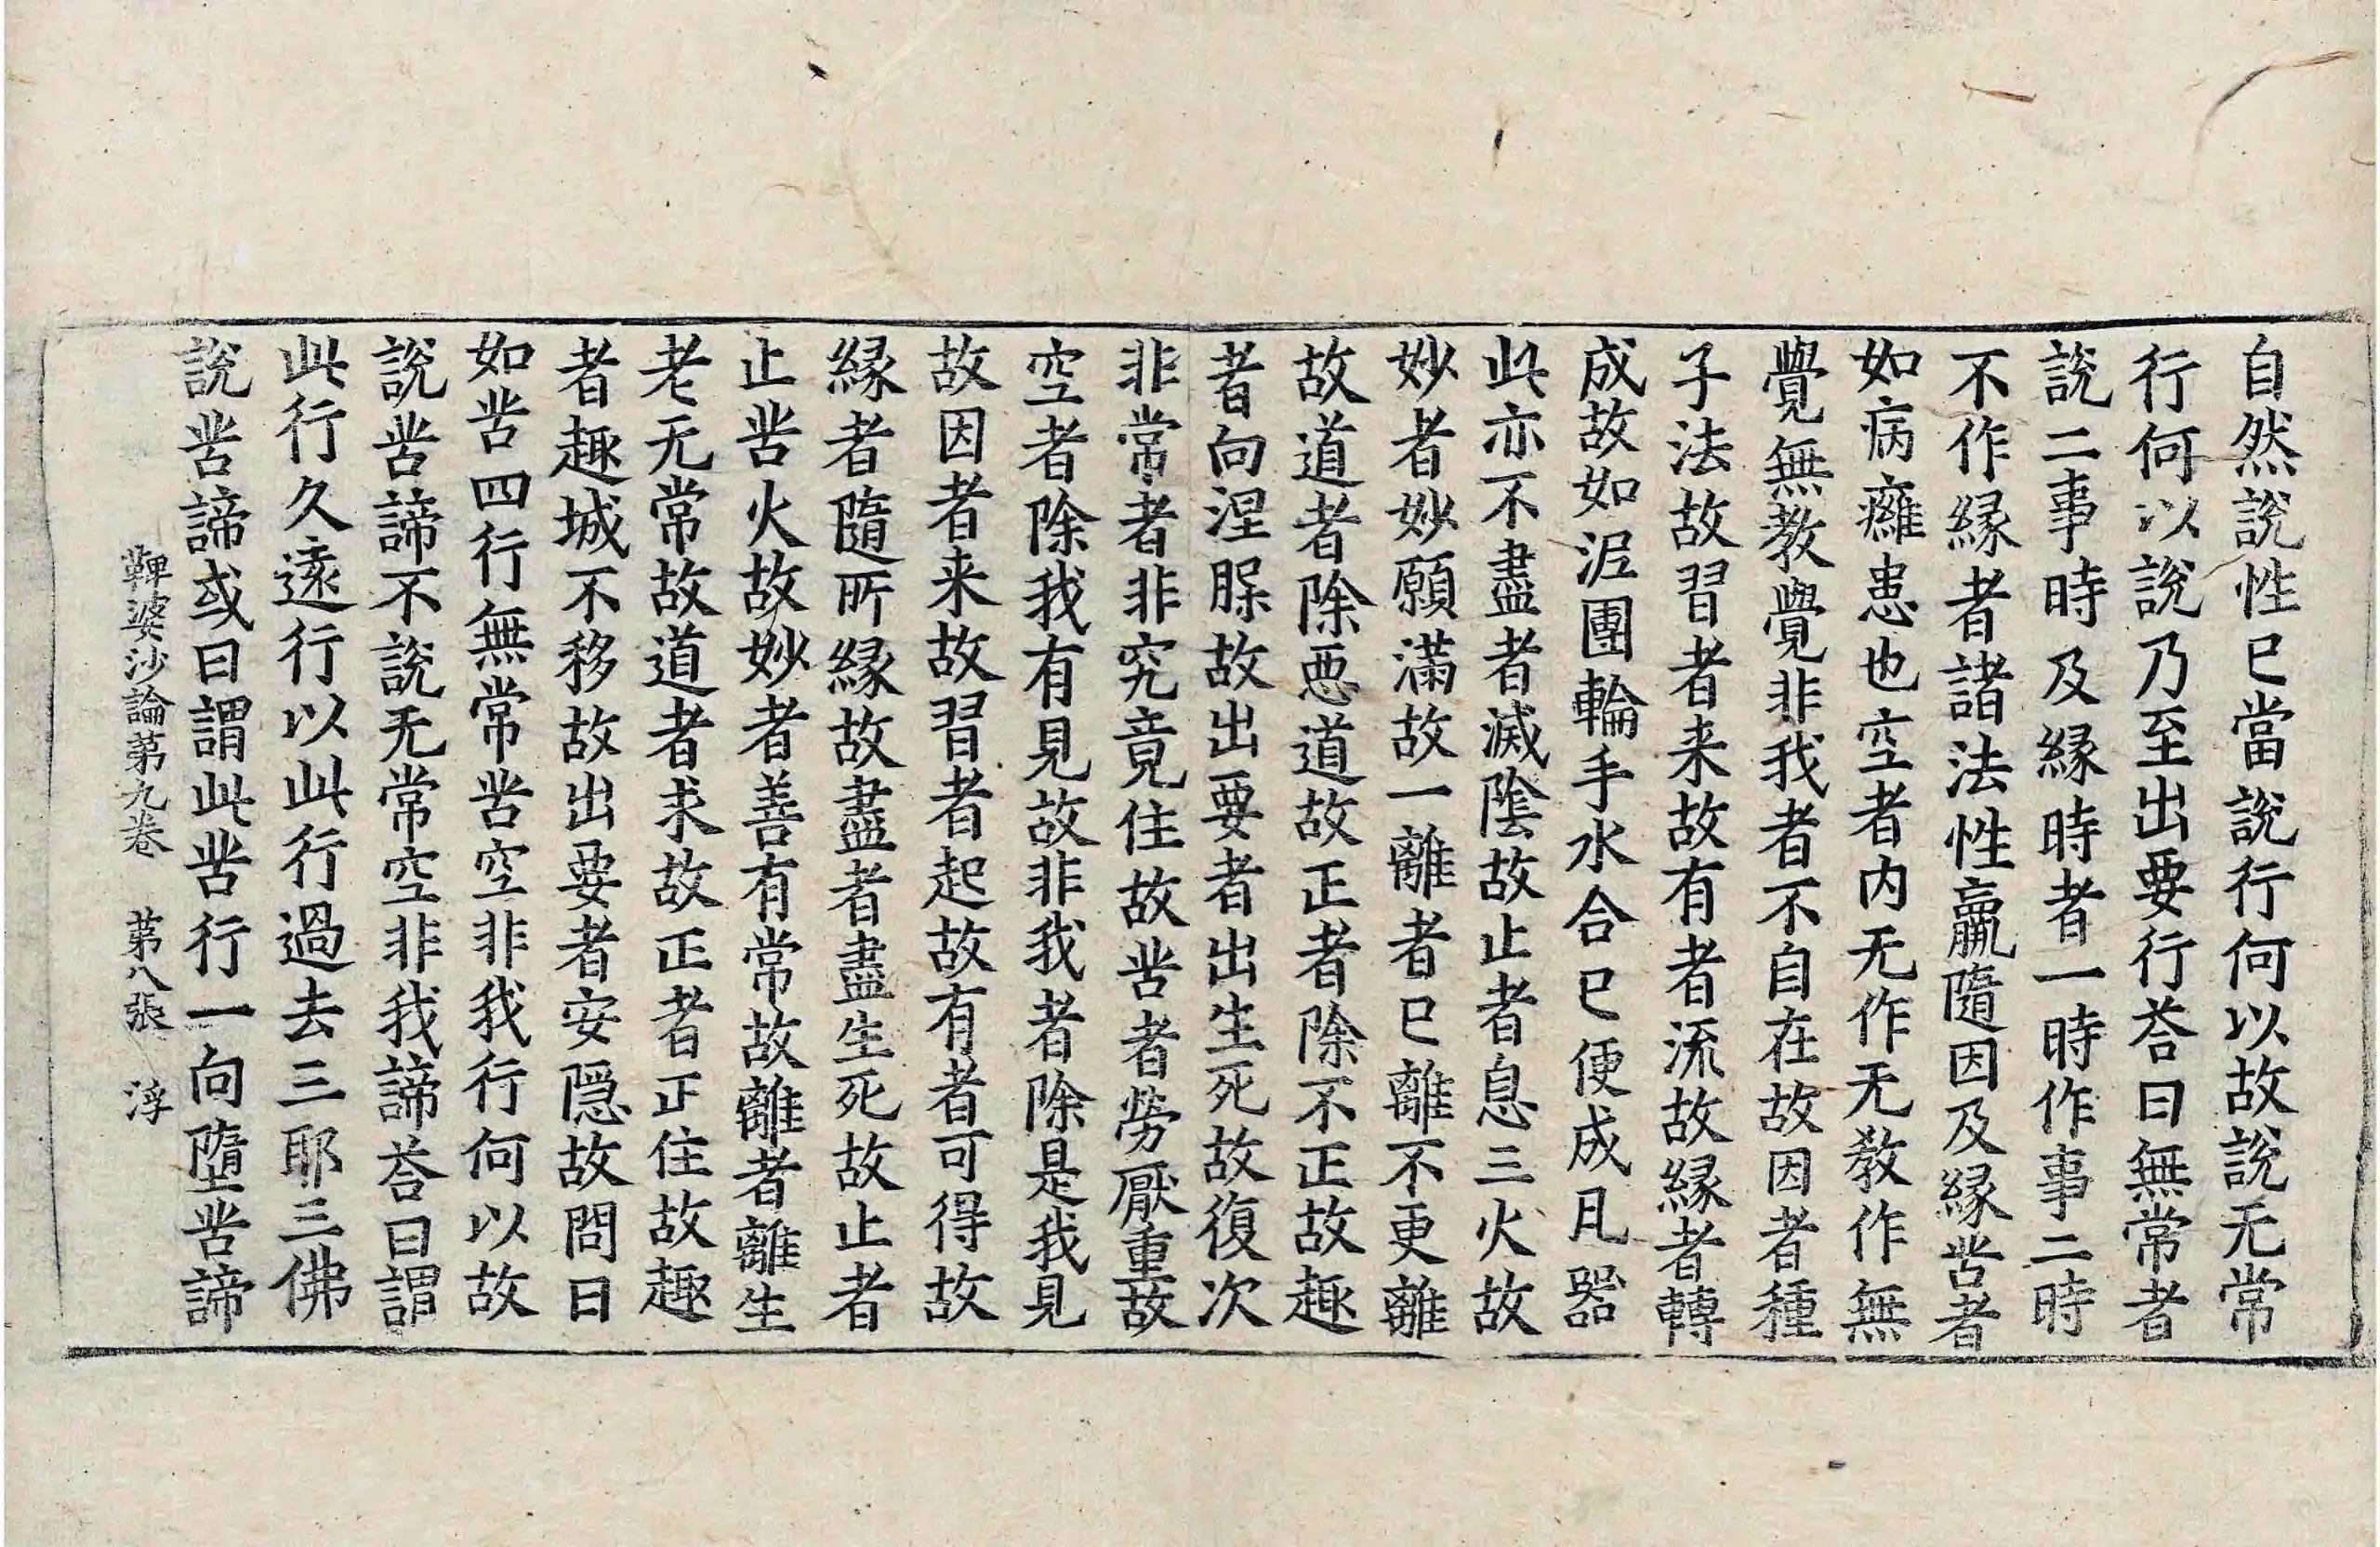 自然說性已當說行何以故說无常
行何以說乃至出要行荅曰無常者
說二事時及緣時者一時作事二時
不作緣者諸法性羸隨因及緣苦者
如病癰患也空者内无作无教作無
覺無教覺非我者不自在故因者種
子法故習者来故有者流故緣者轉
成故如泥團輪手水合已便成凡器
此亦不盡者滅陰故止者息三火故
妙者妙願滿故一離者已離不更離
故道者除惡道故正者除不正故趣
者向涅槃故出要者出生死故復次
非常者非究竟住故苦者勞厭重故
空者除我有見故非我者除是我見
故因者来故習者起故有者可得故
緣者隨所緣故盡者盡生死故止者
止苦火故妙者善有常故離者離生
老无常故道者求故正者正住故趣
者趣城不移故出要者安隱故問曰
如苦四行無常苦空非我行何以故
說苦諦不說无常空非我諦荅曰謂
此行久遠行以此行過去三耶三佛
說苦諦或曰謂此苦行一向墮苦諦
鞞婆沙論第九卷　第八張　浮